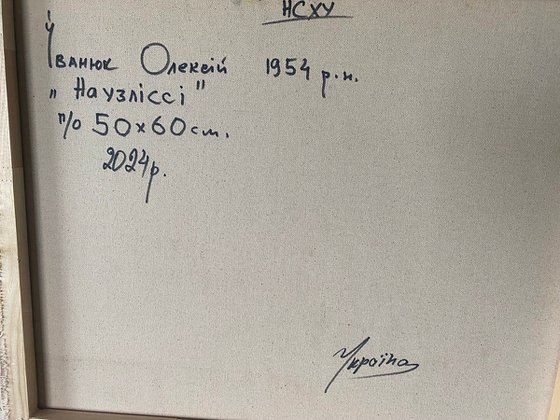 НСХУ
Іванюк Олексій 1954 р.н.
„Наузліссі"
п/о 50х60см.
2024р.
Україна